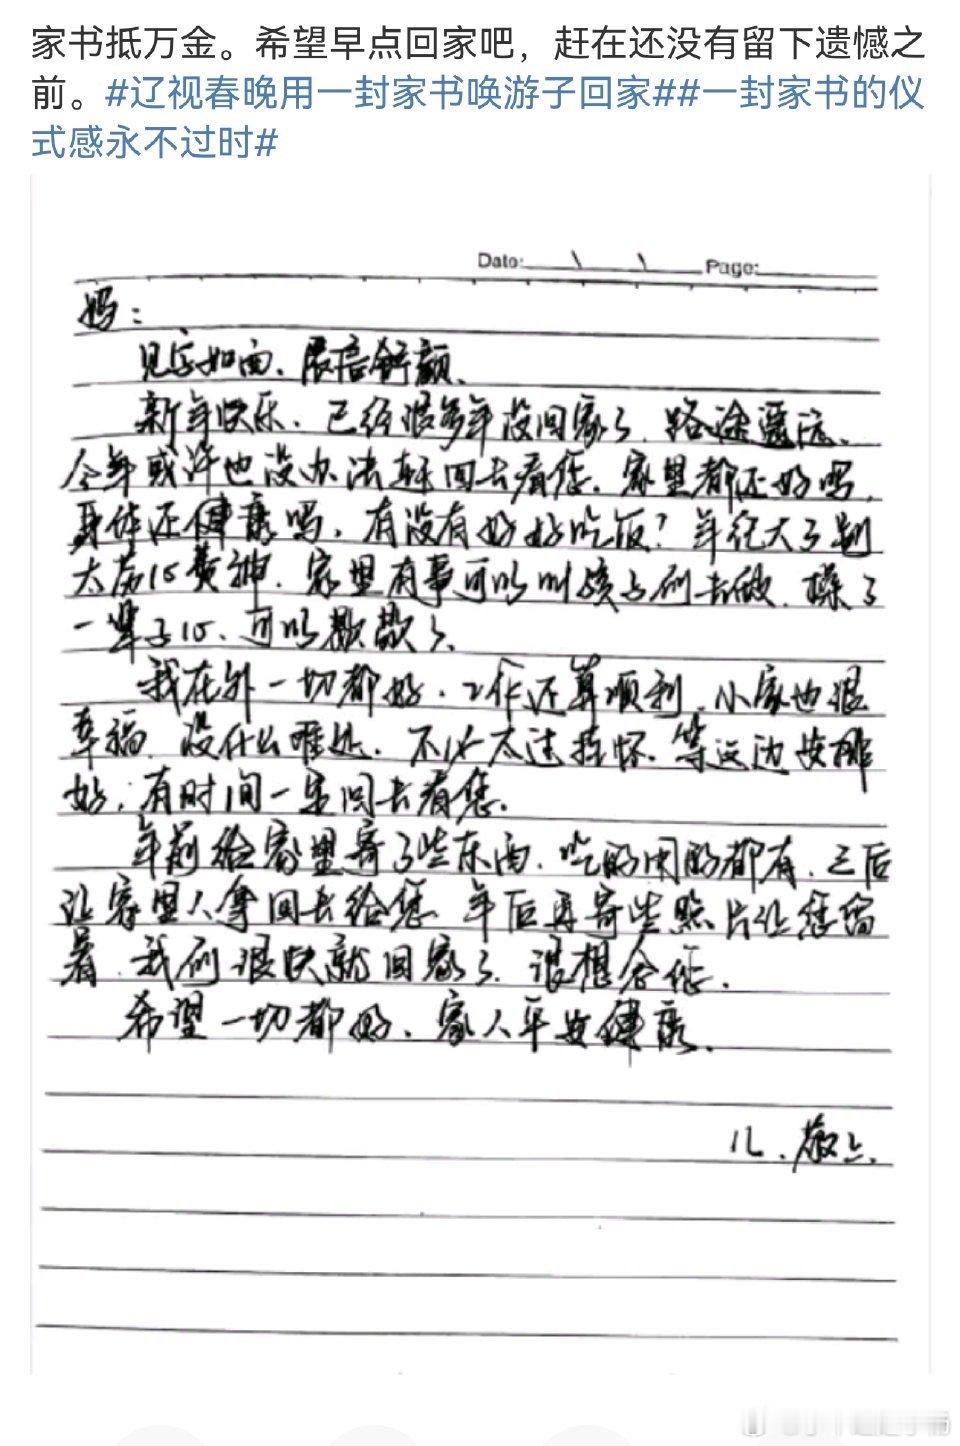 家书抵万金。希望早点回家吧，赶在还没有留下遗憾之
前。#辽视春晚用一封家书唤游子回家##一封家书的仪
式感永不过时#
Date: \ \ Page:
妈：
见字如面、展信舒颜、
新年快乐、已经很多年没回家了、路途遥远、
今年或许也没办法赶回去看您、家里都还好吗、
身体还健康吗、有没有好好吃饭？年纪大了别
太劳心费神、家里有事可以叫孩子们去做、操了
一辈子心、可以歇歇了、
我在外一切都好、工作还算顺利、小家也很
幸福、没什么难处、不必太过挂怀、等这边安排
好、有时间一定回去看您、
年前给家里寄了些东西、吃的用的都有、之后
让家里人拿回去给您、年后再寄些照片让您留
着、我们很快就回家了、很想念您、
希望一切都好、家人平安健康、
儿、敬上、